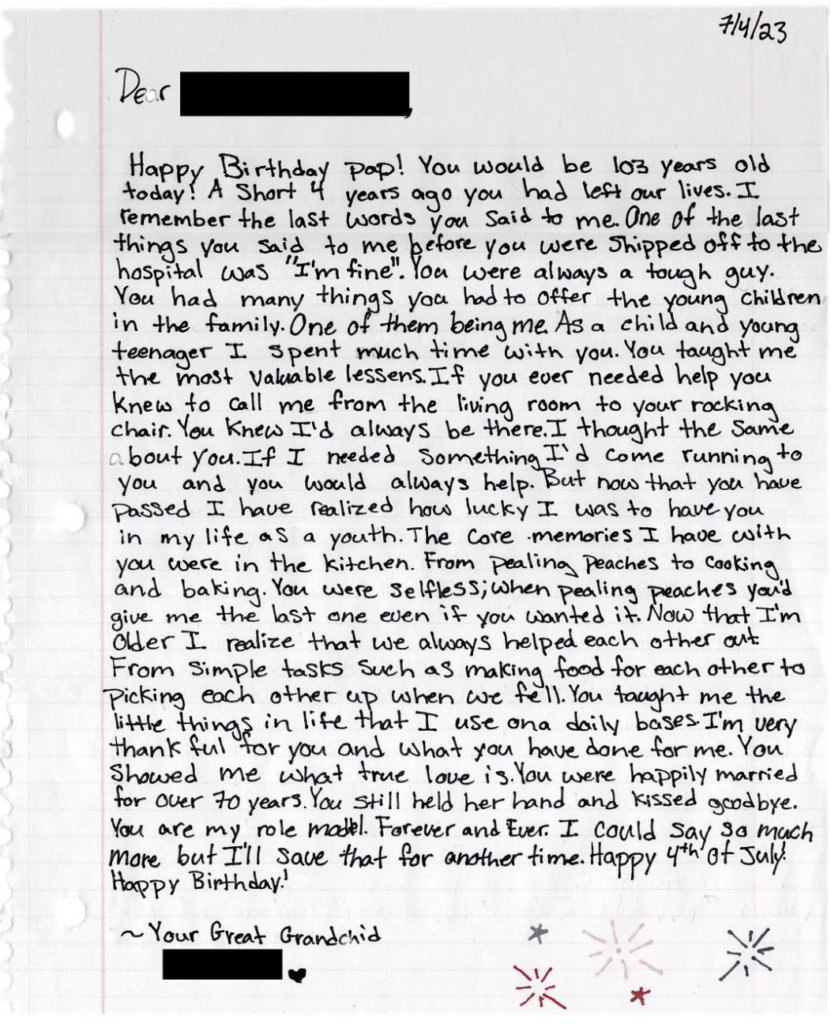 7/4/23
Dear
Happy Birthday pop! You would be 103 years old
today! A Short 4 years ago you had left our lives. I
remember the last words you said to me. One of the last
things you said to me before you were shipped off to the
hospital was "I'm fine". You were always a tough guy.
You had many things you had to offer the young children
in the family. One of them being me. As a child and young
teenager I spent much time with you. You taught me
the most valuable lessens. If you ever needed help you
knew to call me from the living room to your rocking
chair. You knew I'd always be there. I thought the same
about you. If I needed something I'd come running to
you and you would always help. But now that you have
passed I have realized how lucky I was to have you
in my life as a youth. The core memories I have with
you were in the kitchen. From pealing peaches to cooking
and baking. You were selfless; when pealing peaches you'd
give me the last one even if you wanted it. Now that I'm
older I realize that we always helped each other out
From simple tasks such as making food for each other to
picking each other up when we fell. You taught me the
little things in life that I use on a daily bases. I'm very
thankful for you and what you have done for me. You
showed me what true love is. You were happily married
for over 70 years. You still held her hand and kissed goodbye.
You are my role model. Forever and Ever. I could say so much
more but I'll save that for another time. Happy 4th of July!
Happy Birthday!
~ Your Great Grandchid